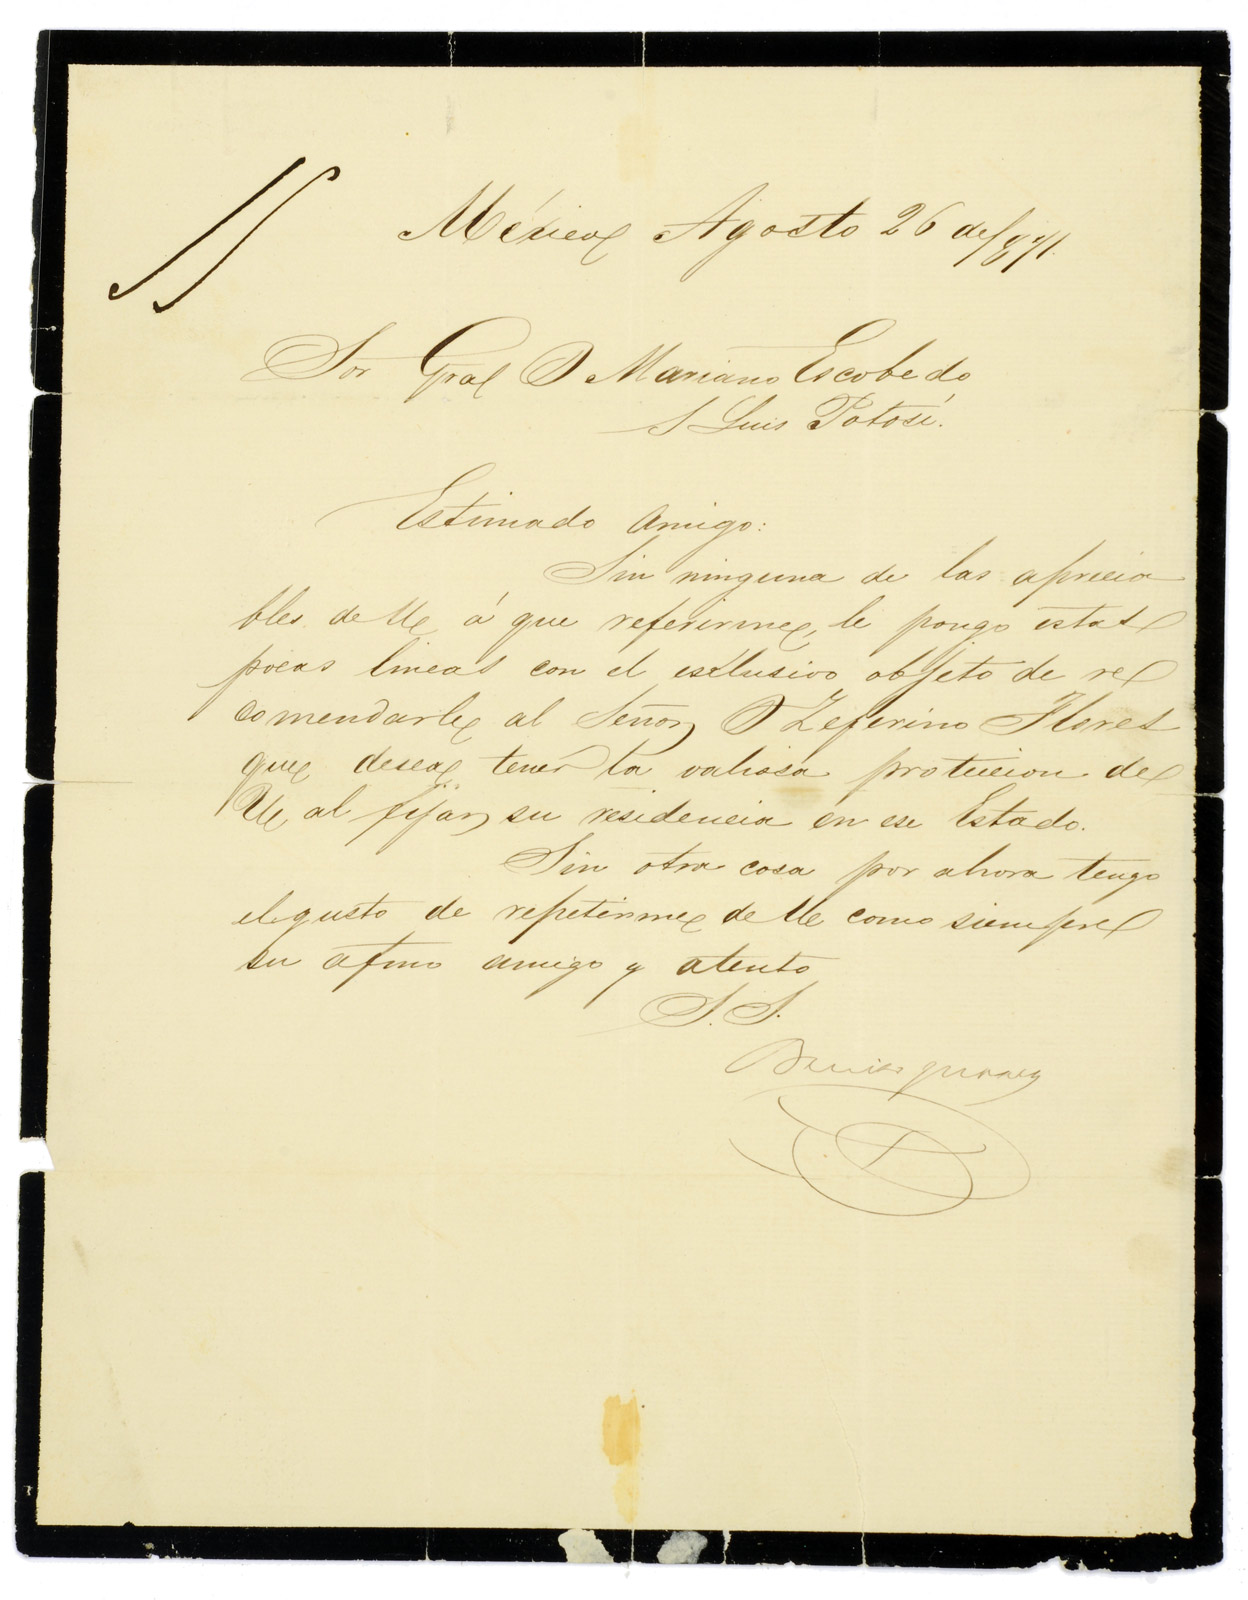 México Agosto 26 de 1871.
Sor Gral D Mariano Escobedo
S Luis Potosí.
Estimado amigo:
Sin ninguna de las aprecia
bles de U á que referirme, le pongo estas
pocas lineas con el esclusivo objeto de re
comendarle al Señor D Zeferino Flores
que desea tener la valiosa proteccion de
U al fijar su residencia en ese Estado.
Sin otra cosa por ahora tengo
el gusto de repetirme de U como siempre
su afmo amigo y atento
S. S.
Benito Juarez